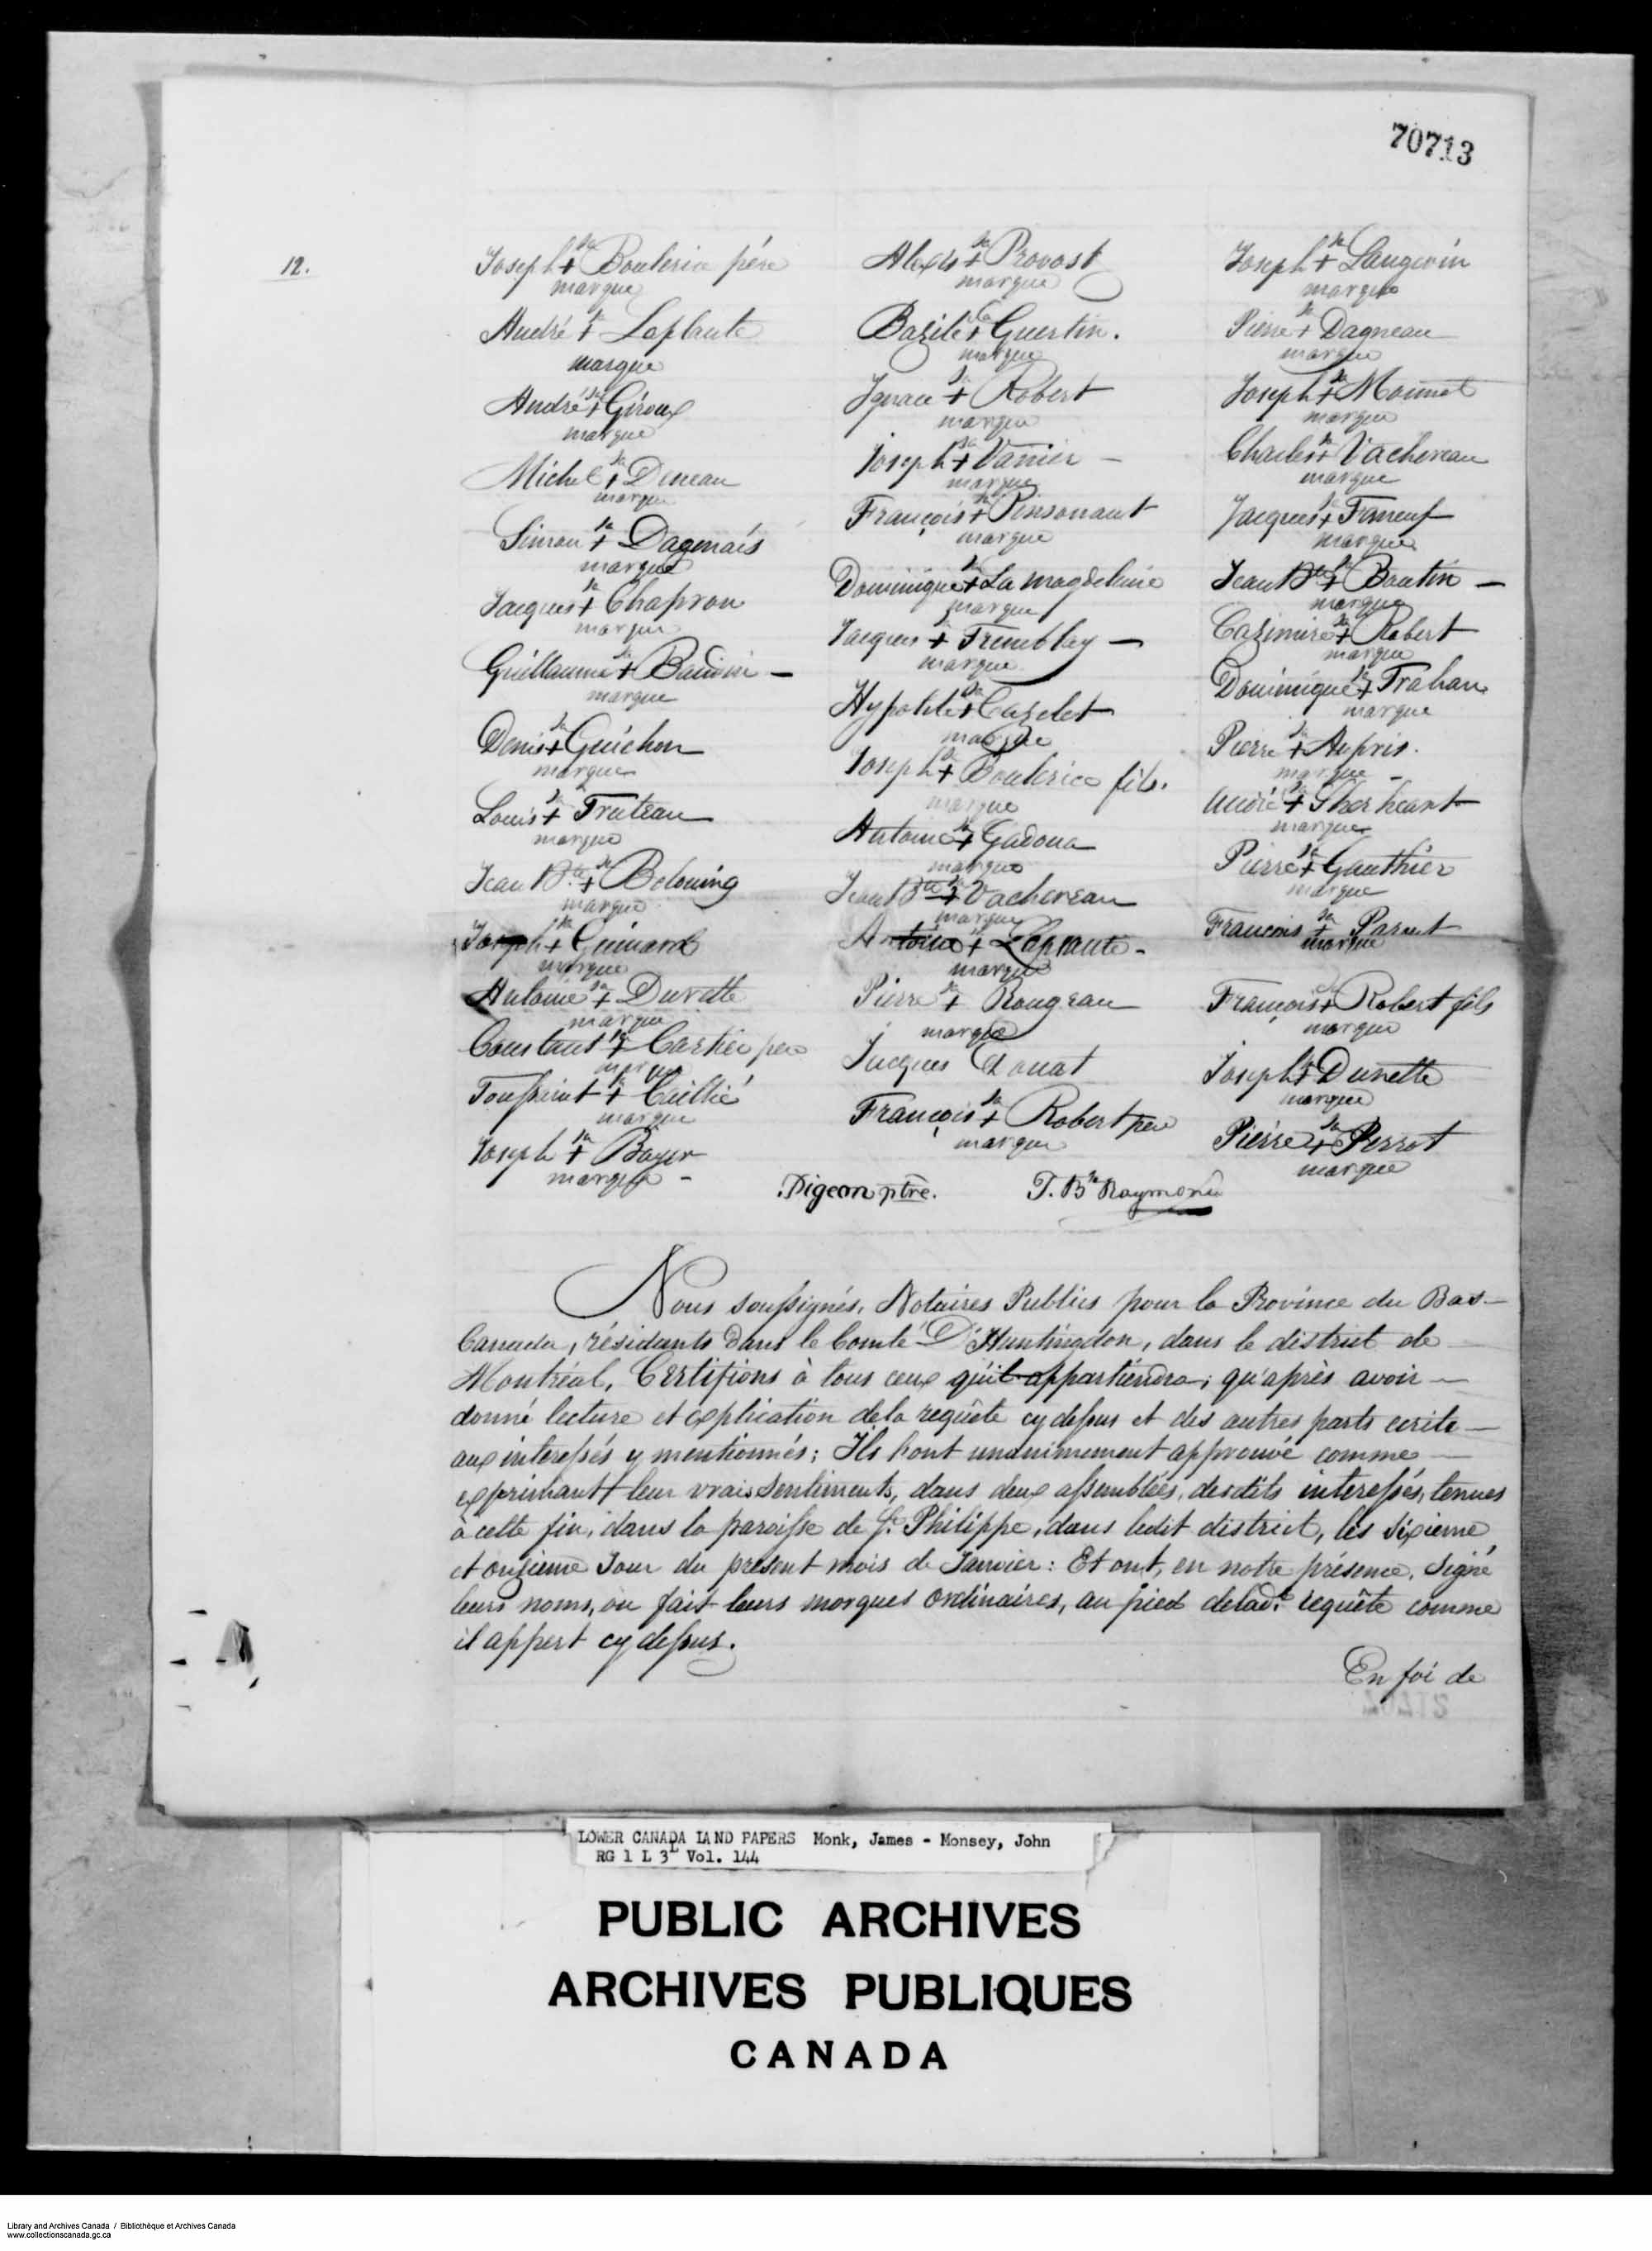 70713
12.
Joseph sa + Boulerice père
marque
André sa + Laplante
marque
André sa + Giroux
marque
Michel sa + Deneau
marque
Simon sa + Dagenais
marque
Jacques sa + Chapron
marque
Guillaume sa + Baudin —
marque
Denis sa + Guichon
marque
Louis sa + Truteau
marque
Jean Bte sa + Belouing
marque
Joseph sa + Guinard
marque
Antoine sa + Durette
marque
Constant sa + Cartier père
marque
Toussaint sa + Caillié
marque
Joseph sa + Boyer
marque -
Alexis sa + Provost
marque
Bazile sa + Guertin.
marque
Ignace sa + Robert
marque
Joseph sa + Vanier —
marque
François sa + Pinsonaut
marque
Dominique sa + La magdeleine
marque
Jacques sa + Tremblay —
marque
Hypolite sa + Cazelet
marque
Joseph sa + Boulerice fils.
marque
Antoine sa + Gadoua
marque
Jean Bte sa + Vachereau
marque
Antoine sa + Laplante -
marque
Pierre sa + Rougeau
marque
Jacques Douat
François sa + Robert père
marque
Joseph sa + Langevin
marque
Pierre sa + Dagneau
marque
Joseph sa + Monnet
marque
Charles sa + Vachereau
marque
Jacques sa + Fameuf
marque
Jean Bte sa + Boutin —
marque
Casimire sa + Robert
marque
Dominique sa + Trahan
marque
Pierre sa + Aupris.
marque -
André sa + Therheart
marque
Pierre sa + Gauthier
marque
François sa + Parent
marque
François sa + Robert fils
marque
Joseph sa + Dunette
marque
Pierre sa + Perrot
marque
Pigeon ptre. J. Bte Raymond
Nous soussignés, Notaires Publics pour la Province du Bas-
Canada, résidants dans le Comté D'Huntingdon, dans le district de
Montréal, Certifions à tous ceux qu'il appartiendra; qu'après avoir —
donné lecture et explication de la requête cy dessus et des autres parts ecrite —
aux interessés y mentionnés; Ils l'ont unanimement approuvé comme —
exprimant leur vrais sentiments, dans deux assemblées, desdits interessés, tenues
à cette fin, dans la paroisse de St. Philippe, dans ledit district, les sixieme
et onzieme Jour du present mois de Janvier: Et ont, en notre présence, signé
leurs noms, ou fait leurs marques ordinaires, au pied de lad.te requête comme
il appert cy dessus.
En foi de
LOWER CANADA LAND PAPERS Monk, James - Monsey, John
RG 1 L 3L Vol. 144
PUBLIC ARCHIVES
ARCHIVES PUBLIQUES
CANADA
Library and Archives Canada / Bibliothèque et Archives Canada
www.collectionscanada.gc.ca